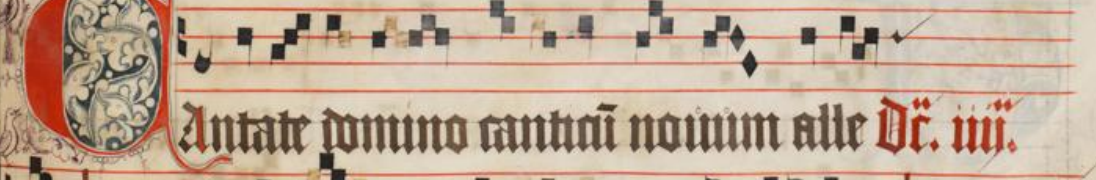 CAntate domino canticū nouum alle Dc̄. iiij.